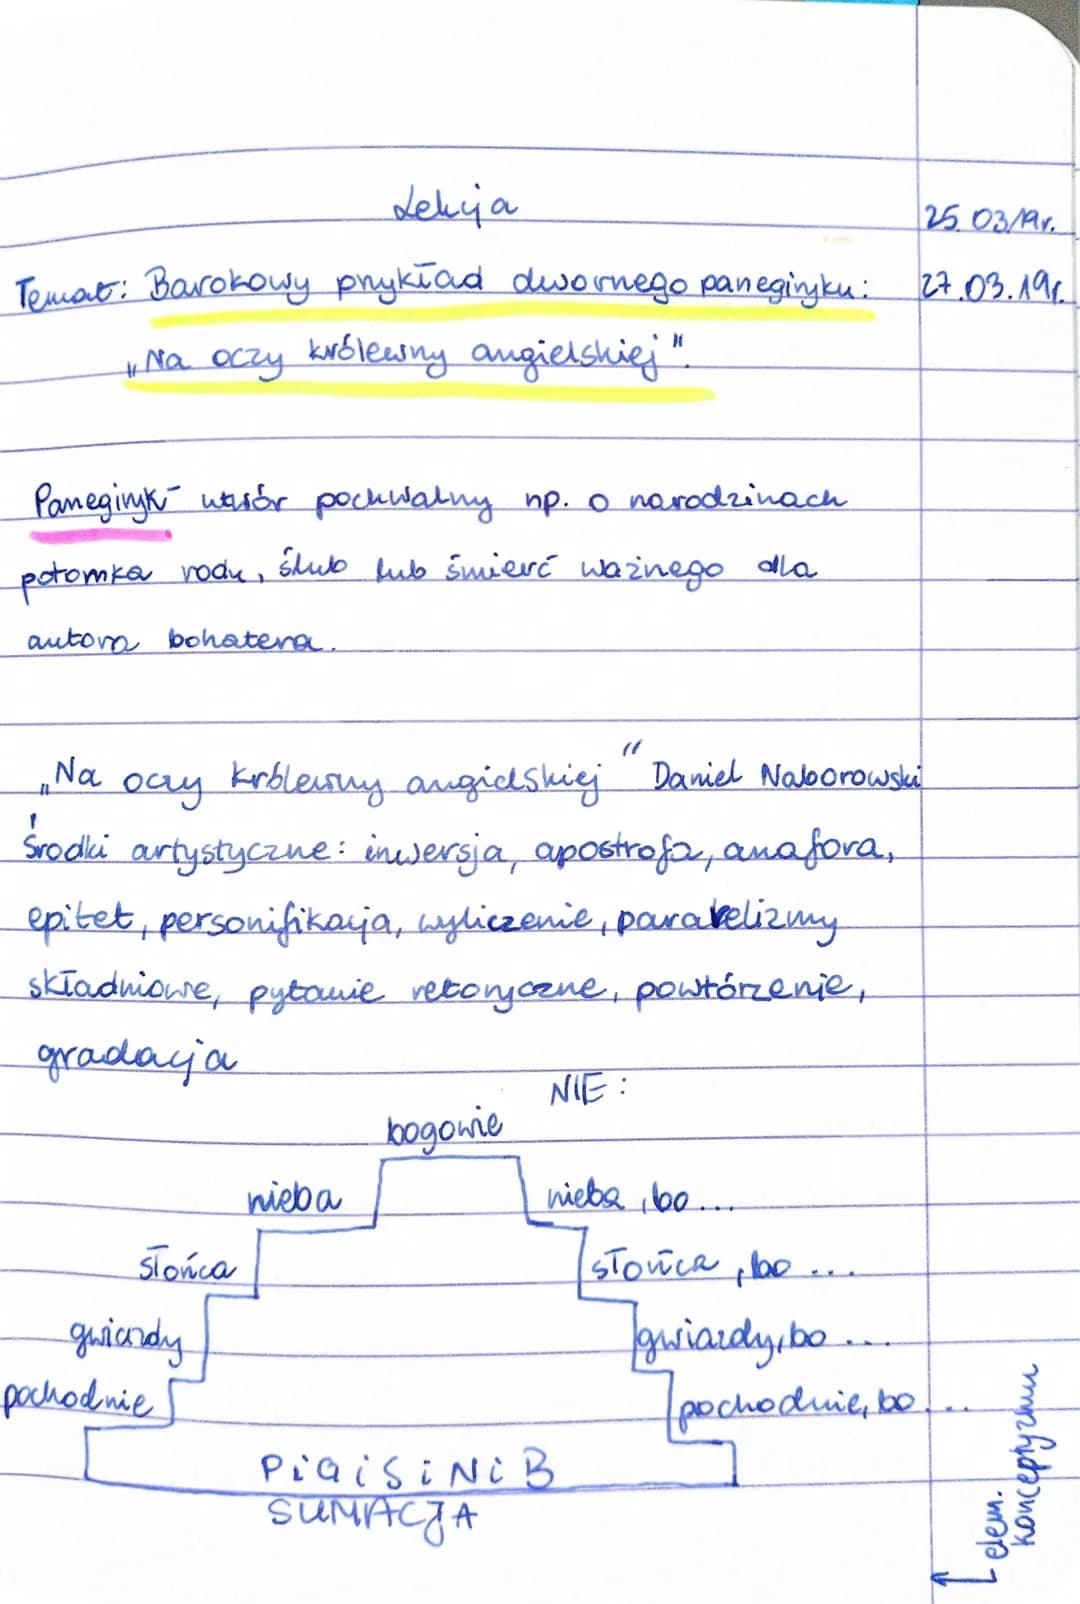 Lekcja
25.03.19r.
Temat: Barokowy przykład dwornego panegiryku:
27.03.19r.
„Na oczy królewny angielskiej".
Panegiryk - utwór pochwalny np. o narodzinach
potomka rodu, ślub lub śmierć ważnego dla
autora bohatera.
„Na oczy królewny angielskiej" Daniel Naborowski
Środki artystyczne: inwersja, apostrofa, anafora,
epitet, personifikacja, wyliczenie, paralelizmy
składniowe, pytanie retoryczne, powtórzenie,
gradacja
NIE:
bogowie
nieba
nieba, bo...
słońca
słońca, bo ...
gwiazdy
gwiazdy, bo ...
pochodnie
pochodnie, bo ...
P i G i S i N i B
SUMACJA
elem.
konceptyzmu